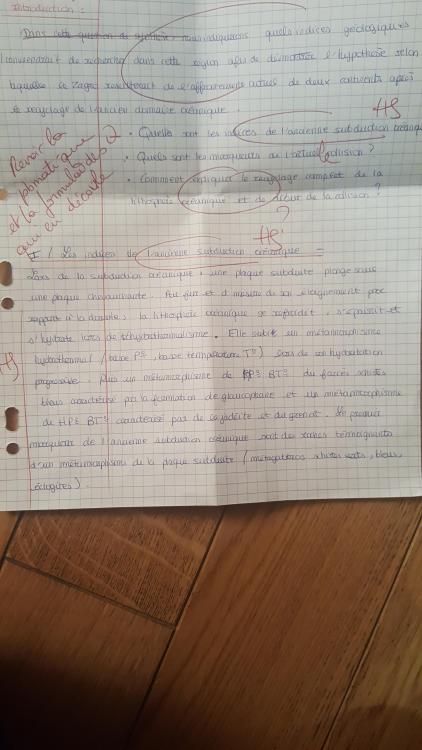 Introduction :
Dans cette question de synthèse nous indiquerons quels indices géologiques
conviendrait de rechercher dans cette région afin de démontrer l'hypothèse selon
laquelle le Zagros résulterait de l'affrontement actuel de deux continents après
le recyclage de l'ancien domaine océanique.
HS
Revoir la pbmatique et la formulation des Q qui en découle
• Quels sont les indices de l'ancienne subduction océanique
• Quels sont les marqueurs de l'actuelle collision ?
• Comment expliquer le recyclage complet de la
lithosphère océanique et de début de la collision ?
?
HS
I / Les indices de l'ancienne subduction océanique
Lors de la subduction océanique, une plaque subduite plonge sous
une plaque chevauchante. Au fur et à mesure de son éloignement par
rapport à la dorsale, la lithosphère océanique se refroidit, s'épaissit et
s'hydrate lors de l'hydrothermalisme. Elle subit un métamorphisme
HS
hydrothermal (basse P°, basse température T°) lors de son hydratation
progressive. Puis un métamorphisme de HP BT du faciès schistes
bleus caractérisé par la formation de glaucophane et un métamorphisme
de HP BT caractérisé par de la jadéite et du grenat. Le premier
marqueur de l'ancienne subduction océanique sont des roches témoignants
d'un métamorphisme de la plaque subduite (métagabbros schistes verts, bleus,
éclogites).